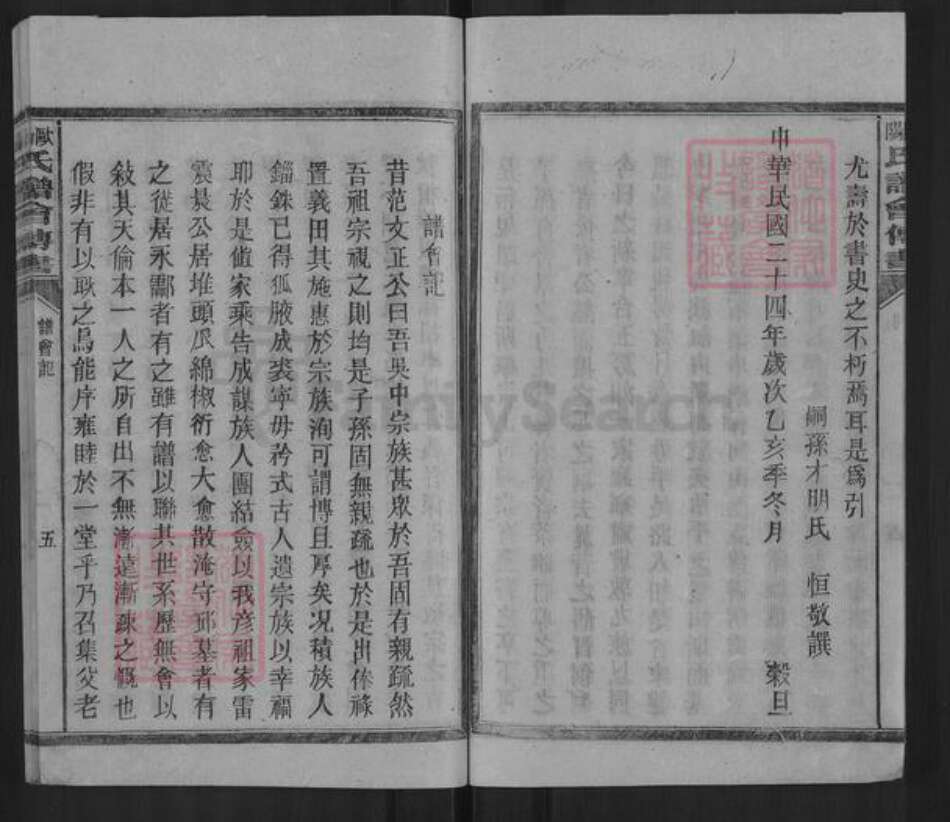 尤壽於書史之不朽焉耳是爲引
嗣孫才明氏 恒敬譔
中華民國二十四年歲次乙亥季冬月 穀旦
譜會記
昔范文正公曰吾吳中宗族甚眾於吾固有親疏然
吾祖宗視之則均是子孫固無親疏也於是出俸祿
置義田其施惠於宗族洵可謂博且厚矣况積族人
錙銖已得狐腋成裘寧毋矜式古人遺宗族以幸福
耶於是傕家乘告成謀族人團結僉以我彦祖家雷
震晸公居堆頭瓜綿椒衍愈大愈散淹守邱墓者有
之從居永酃者有之雖有譜以聯其世系歷無會以
敍其天倫本一人之所自出不無漸遠漸疎之慨也
假非有以聮之烏能序雍睦於一堂乎乃召集父老
歐氏譜會傳書
譜會記
五
FamilySearch